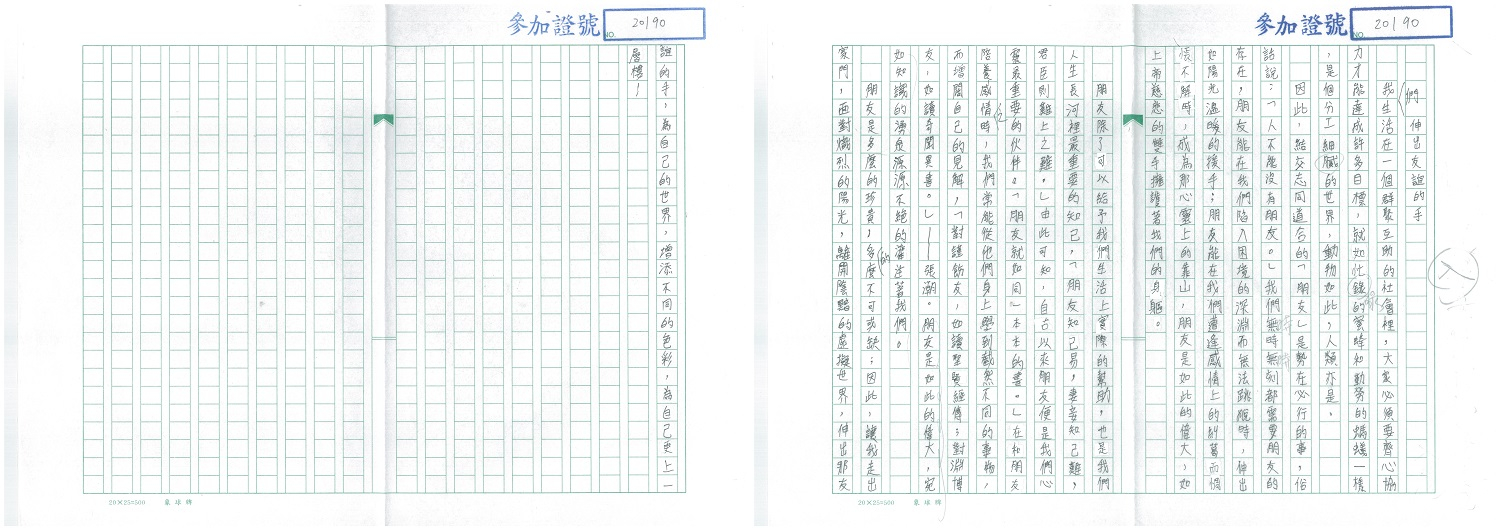 參加證號 20190
NO.
伸出友誼的手
我們生活在一個群聚互助的社會裡，大家必須要齊心協
力才能達成許多目標，就如忙錄的蜜蜂和勤勞的螞蟻一樣
，是個分工細膩的世界，動物如此，人類亦是。
因此，結交志同道合的「朋友」是勢在必行的事，俗
話說：「人不能沒有朋友。」我們無時無刻都需要朋友的
存在，朋友能在我們陷入困境的深淵而無法跳脫時，伸出
如陽光溫暖的後手；朋友能在我們遭逢感情上的糾葛而惆
悵不解時，成為那心靈上的靠山，朋友是如此的偉大，如
上帝慈悲的雙手擁護著我們的身軀。
朋友除了可以給予我們生活上實際的幫助，也是我們
人生長河裡最重要的知己，「朋友知己易，妻妾知己難，
君臣則難上之難。」由此可知，自古以來朋友便是我們心
靈最重要的伙伴。「朋友就如同一本本的書。」在和朋友
陪養感情時，我們常能從他們身上學到截然不同的事物，
而增闊自己的見解，「對謹飭友，如讀聖賢經傳；對淵博
友，如讀奇聞異書。」——張潮。朋友是如此的偉大，宛
如知識的湧泉源源不絕的灌注著我們。
朋友是多麼的珍貴，多麼的不可或缺；因此，讓我走出
家門，面對熾烈的陽光，離開陰黯的虛擬世界，伸出那友
20×25=500 象球牌
參加證號 20190
NO.
誼的手，為自己的世界，增添不同的色彩，為自己更上一
層樓！
20×25=500 象球牌